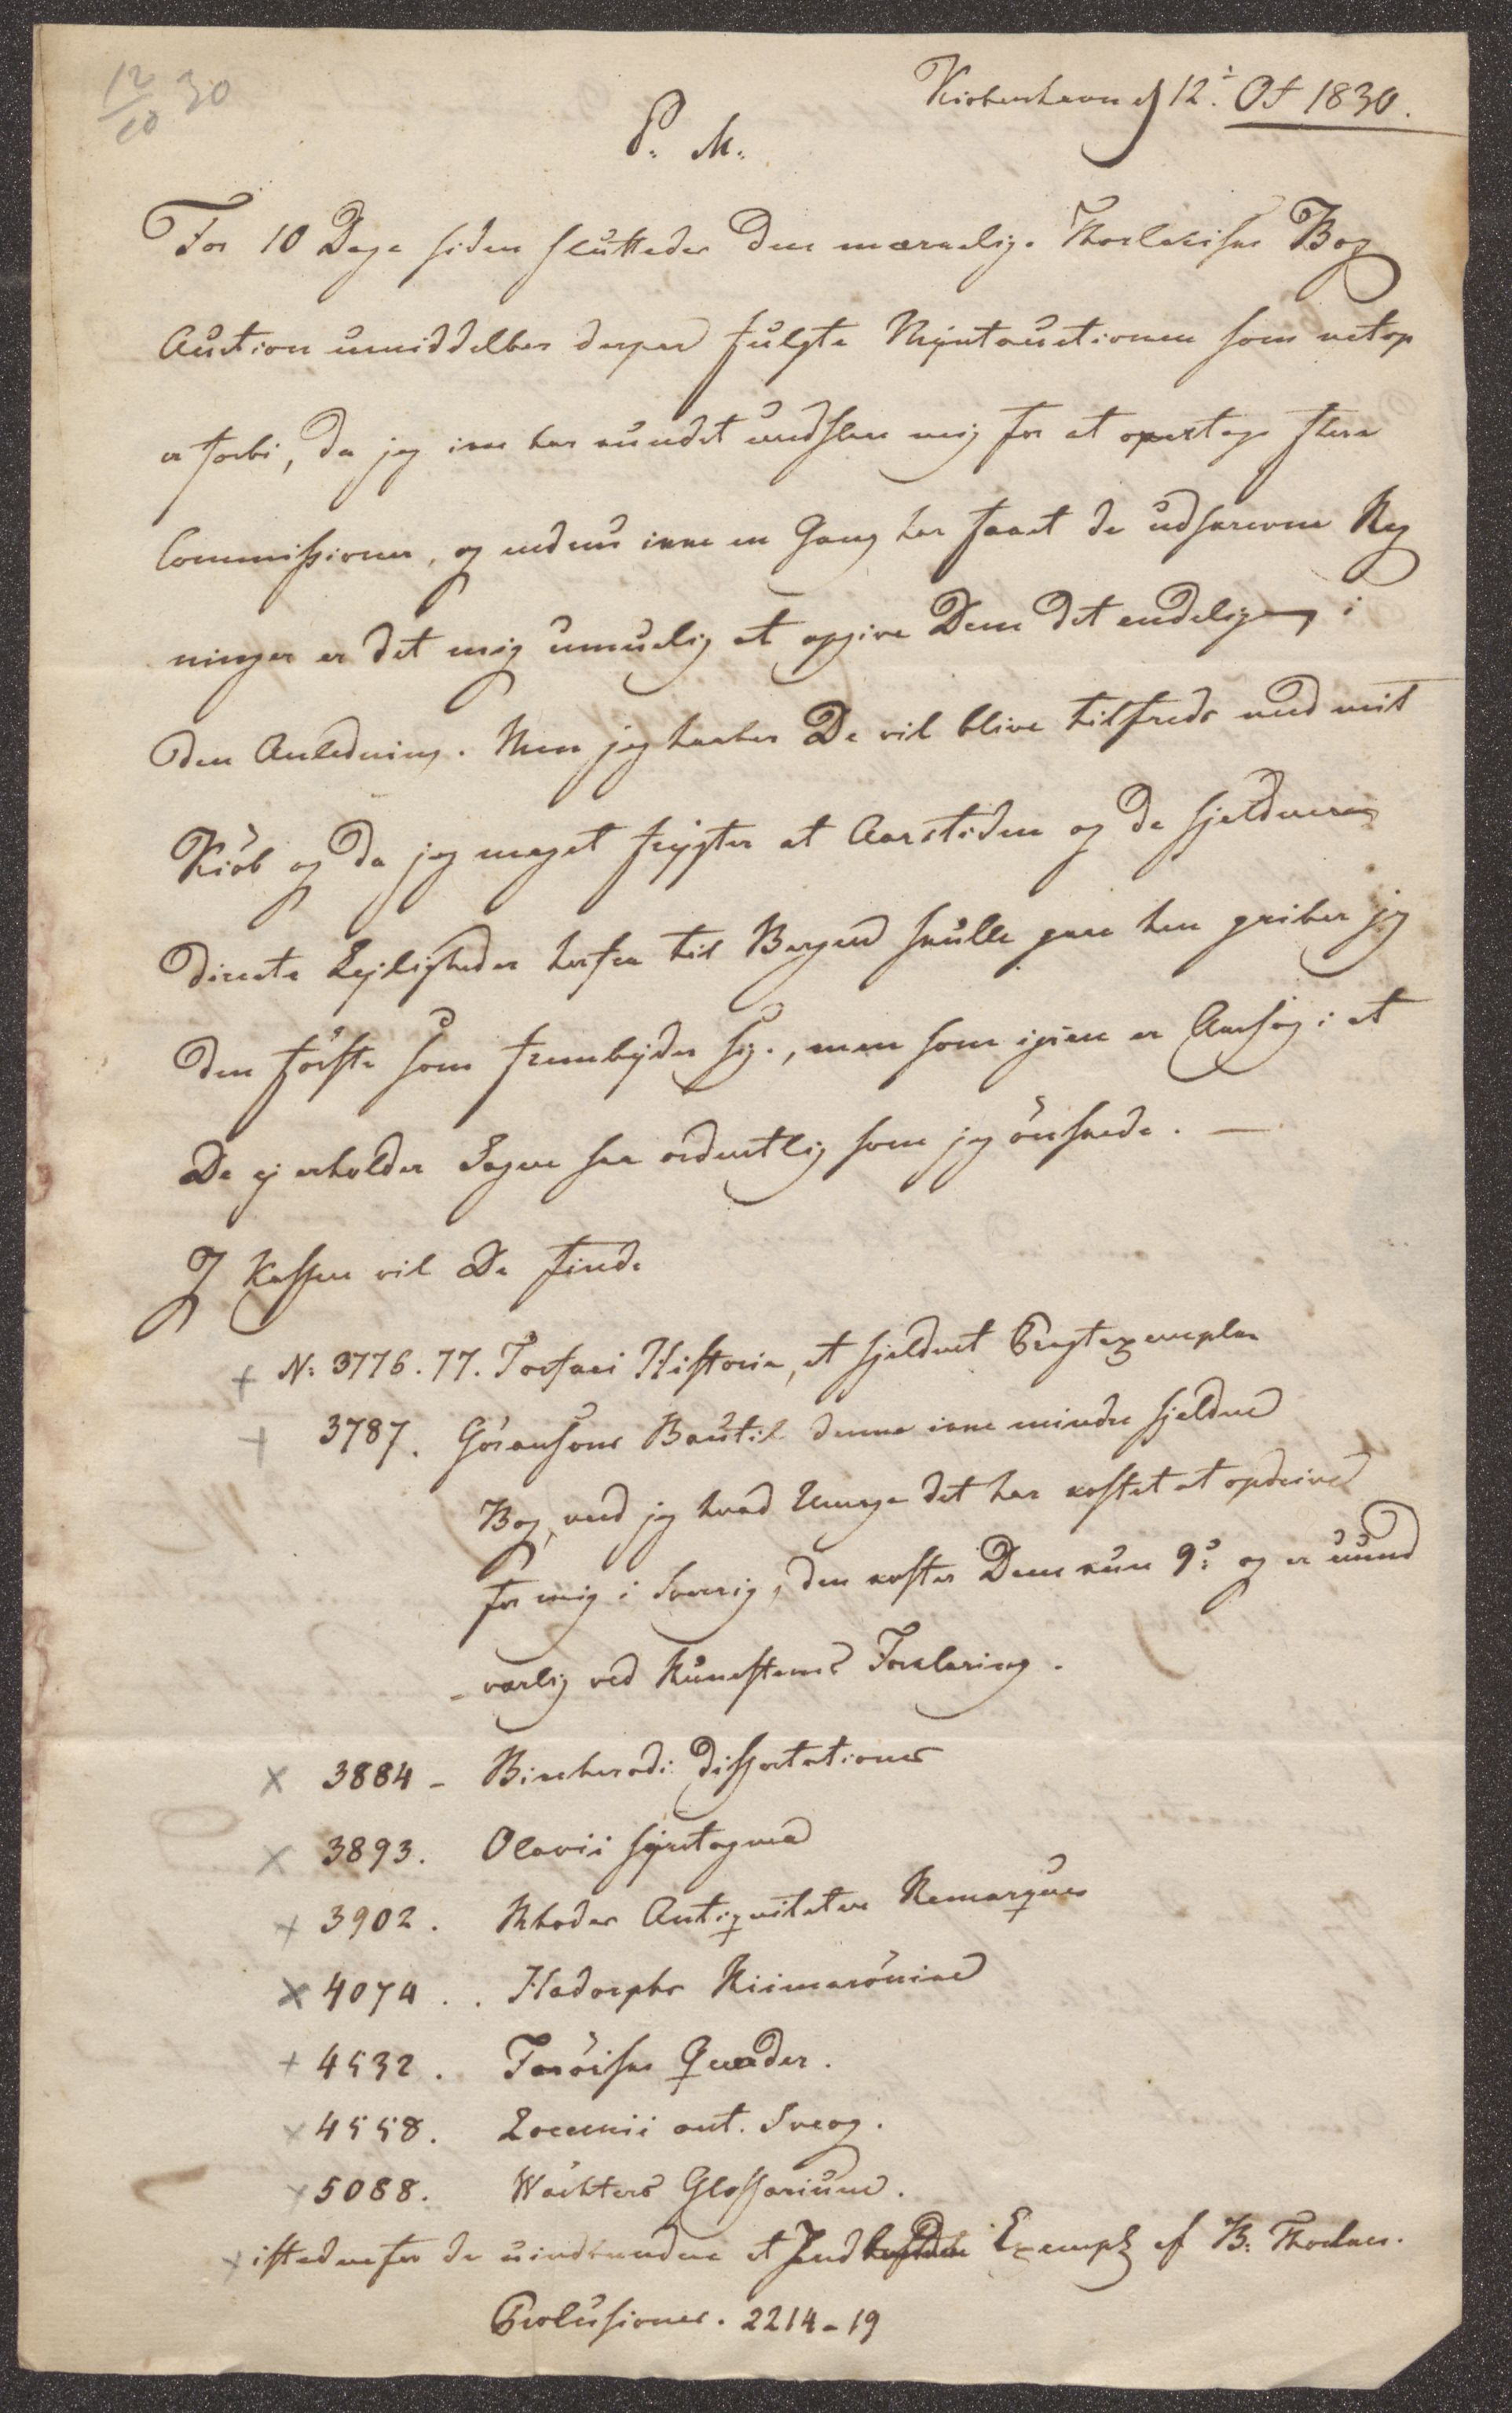 12/10 30
Kiøbenhavn d 12t Oct 1830.
P. M.
For 10 Dage siden sluttedes den mærkelige Thorlaciske Bog
Auction umiddelbar derpaa fulgte Myntauctionen som netop
er forbi, da jeg ikke har kundet undslaae mig for at opertage flere
Commissioner, og endnu ikke en Gang har faaet de udskrevne Reg
ninger er det mig umuelig at opgive Dem det endelige i
den Anledning. Men jeg haaber De vil blive tilfreds med mit
Kiöb og da jeg meget frygter at Aarstiden og de sjeldnere
directe Lejligheder herfra til Bergen skulle gaae hen griber jeg
den förste som frembyder sig, men som igien er Aarsag i at
De ej erholder Sagene saa ordentlig som jeg önskede. —
I Kassen vil De finde
+ N: 3776. 77. Torfæi Historia, et sjeldent Pragtexemplar
+ 3787. Göransons Bautil denne ikke mindre sjeldne
Bog, veed jeg hvad Umage det har kostet at opdrive
for mig i Sverrig, den koster Dem kun 9: og er uund
-værlig ved Runestenes Forklaring.
x 3884 - Bircherodi Dissertationer
x 3893. Olavii Syntagma
+ 3902. Rhodes Antiqviteten Remarques
x 4074.. Hadorphs Riimkrönike
+ 4532. Færöiske Qvæder.
x 4558. Loccenii ant. Sveog.
x 5088. Wachters Glossarium.
x istedenfor de uindbundne et Indbundne Exempl af B: Thorlac.
Prolusioner. 2214-19